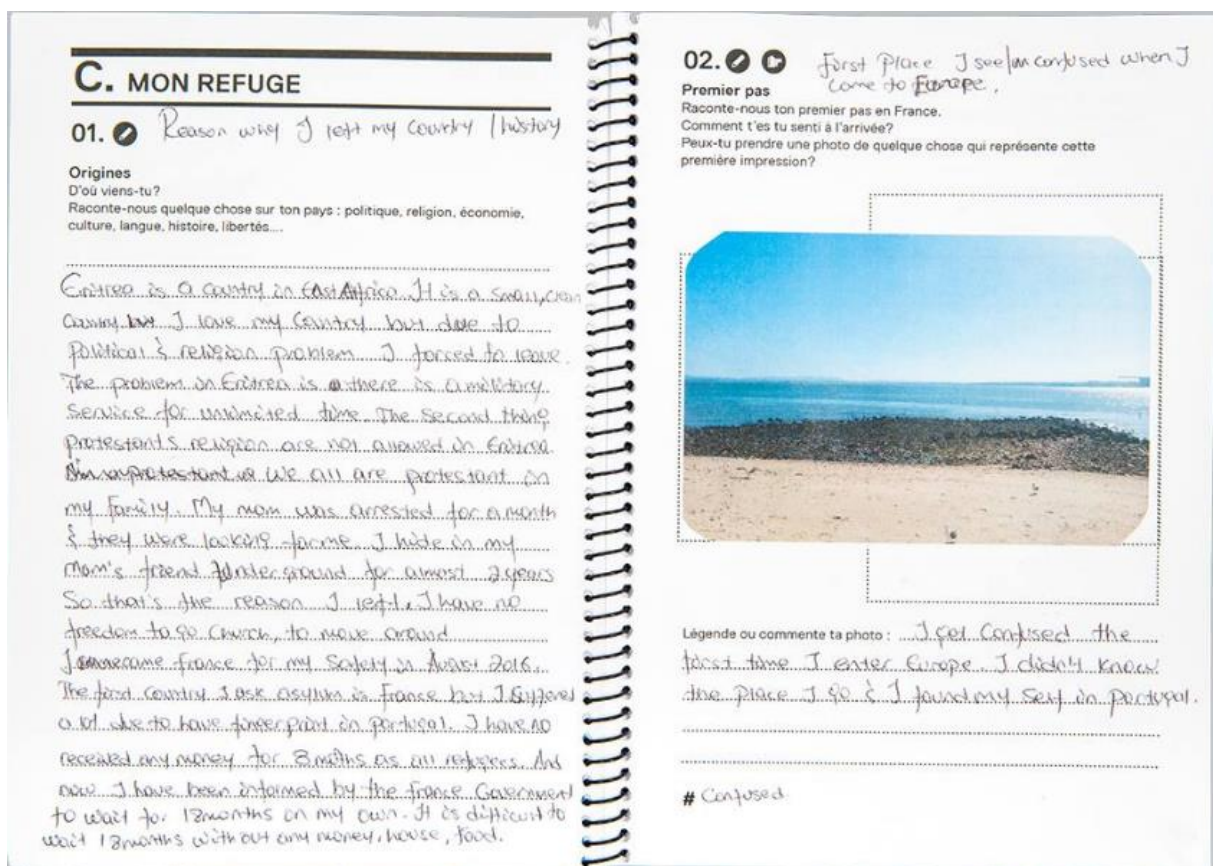 C. MON REFUGE
01. Reason why I left my country / history
Origines
D'où viens-tu?
Raconte-nous quelque chose sur ton pays : politique, religion, économie,
culture, langue, histoire, libertés....
Eritrea is a country in East Africa. It is a small, clean
country I love my country but due to
political & religion problem I forced to leave.
The problem in Eritrea is there is a military
service for unlimited time. The second thing
protestants religion are not allowed in Eritrea
We all are protestant in
my family. My mom was arrested for a month
& they were looking for me. I hide in my
mom's friend underground for almost 2 years
So that's the reason I left. I have no
freedom to go church, to move around
I came france for my safety in August 2016.
The first country I ask asylum is france but I suffered
a lot due to have finger print in portugal. I have no
received any money for 8 moths as all refugees. And
now I have been informed by the france Government
to wait for 18 months on my own. It is difficult to
wait 18 months without any money, house, food.
02. First Place I see/im confused when I
come to Europe.
Premier pas
Raconte-nous ton premier pas en France.
Comment t'es tu senti à l'arrivée?
Peux-tu prendre une photo de quelque chose qui représente cette
première impression?
Légende ou commente ta photo : I get confused the
first time I enter Europe. I didn't know
the place I go & I found my self in portugal.
# Confused